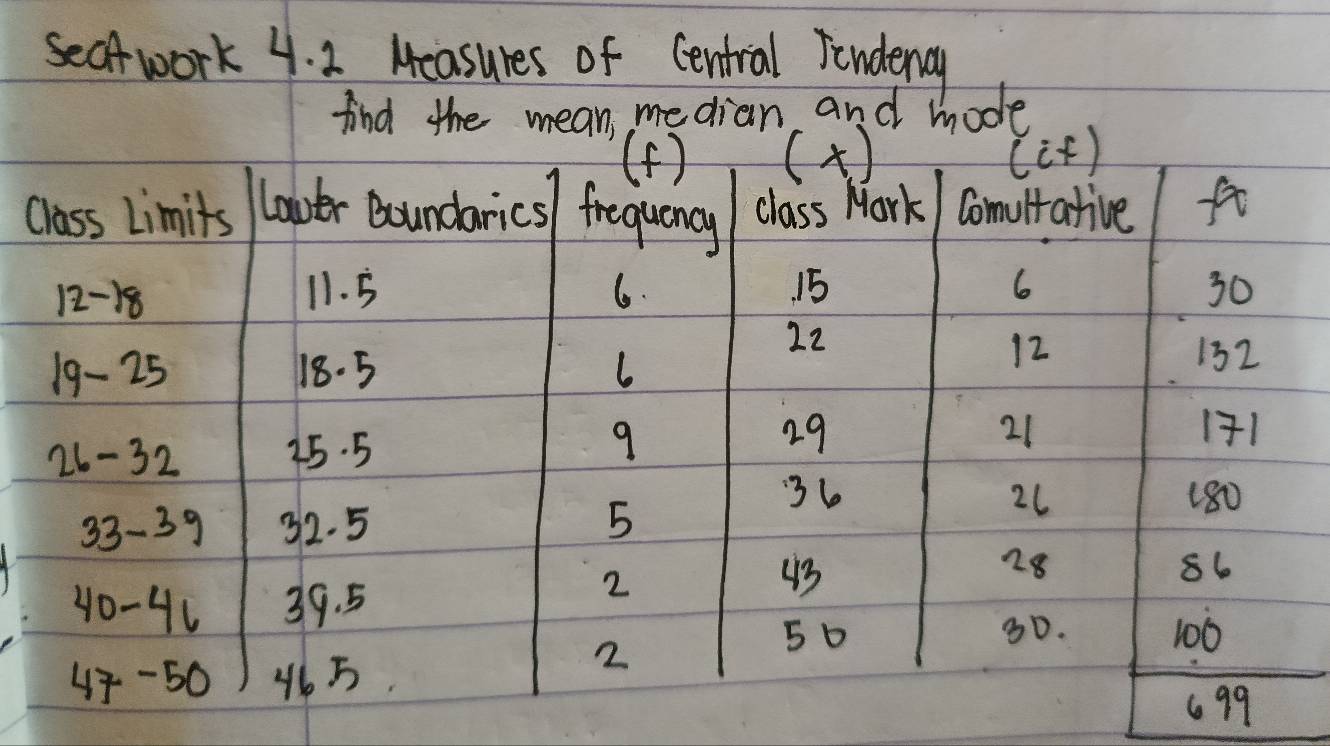 Seatwork 4.2 Measures of Central Tendency
find the mean, median and mode
(f) (x) (cf)
Class Limits Lower Boundaries frequency class Mark Comultative fx
12-18 11.5 6 15 6 30
19-25 18.5 6 22 12 132
26-32 25.5 9 29 21 171
33-39 32.5 5 36 26 180
40-46 39.5 2 43 28 86
47-50 46.5 2 50 30. 100
699